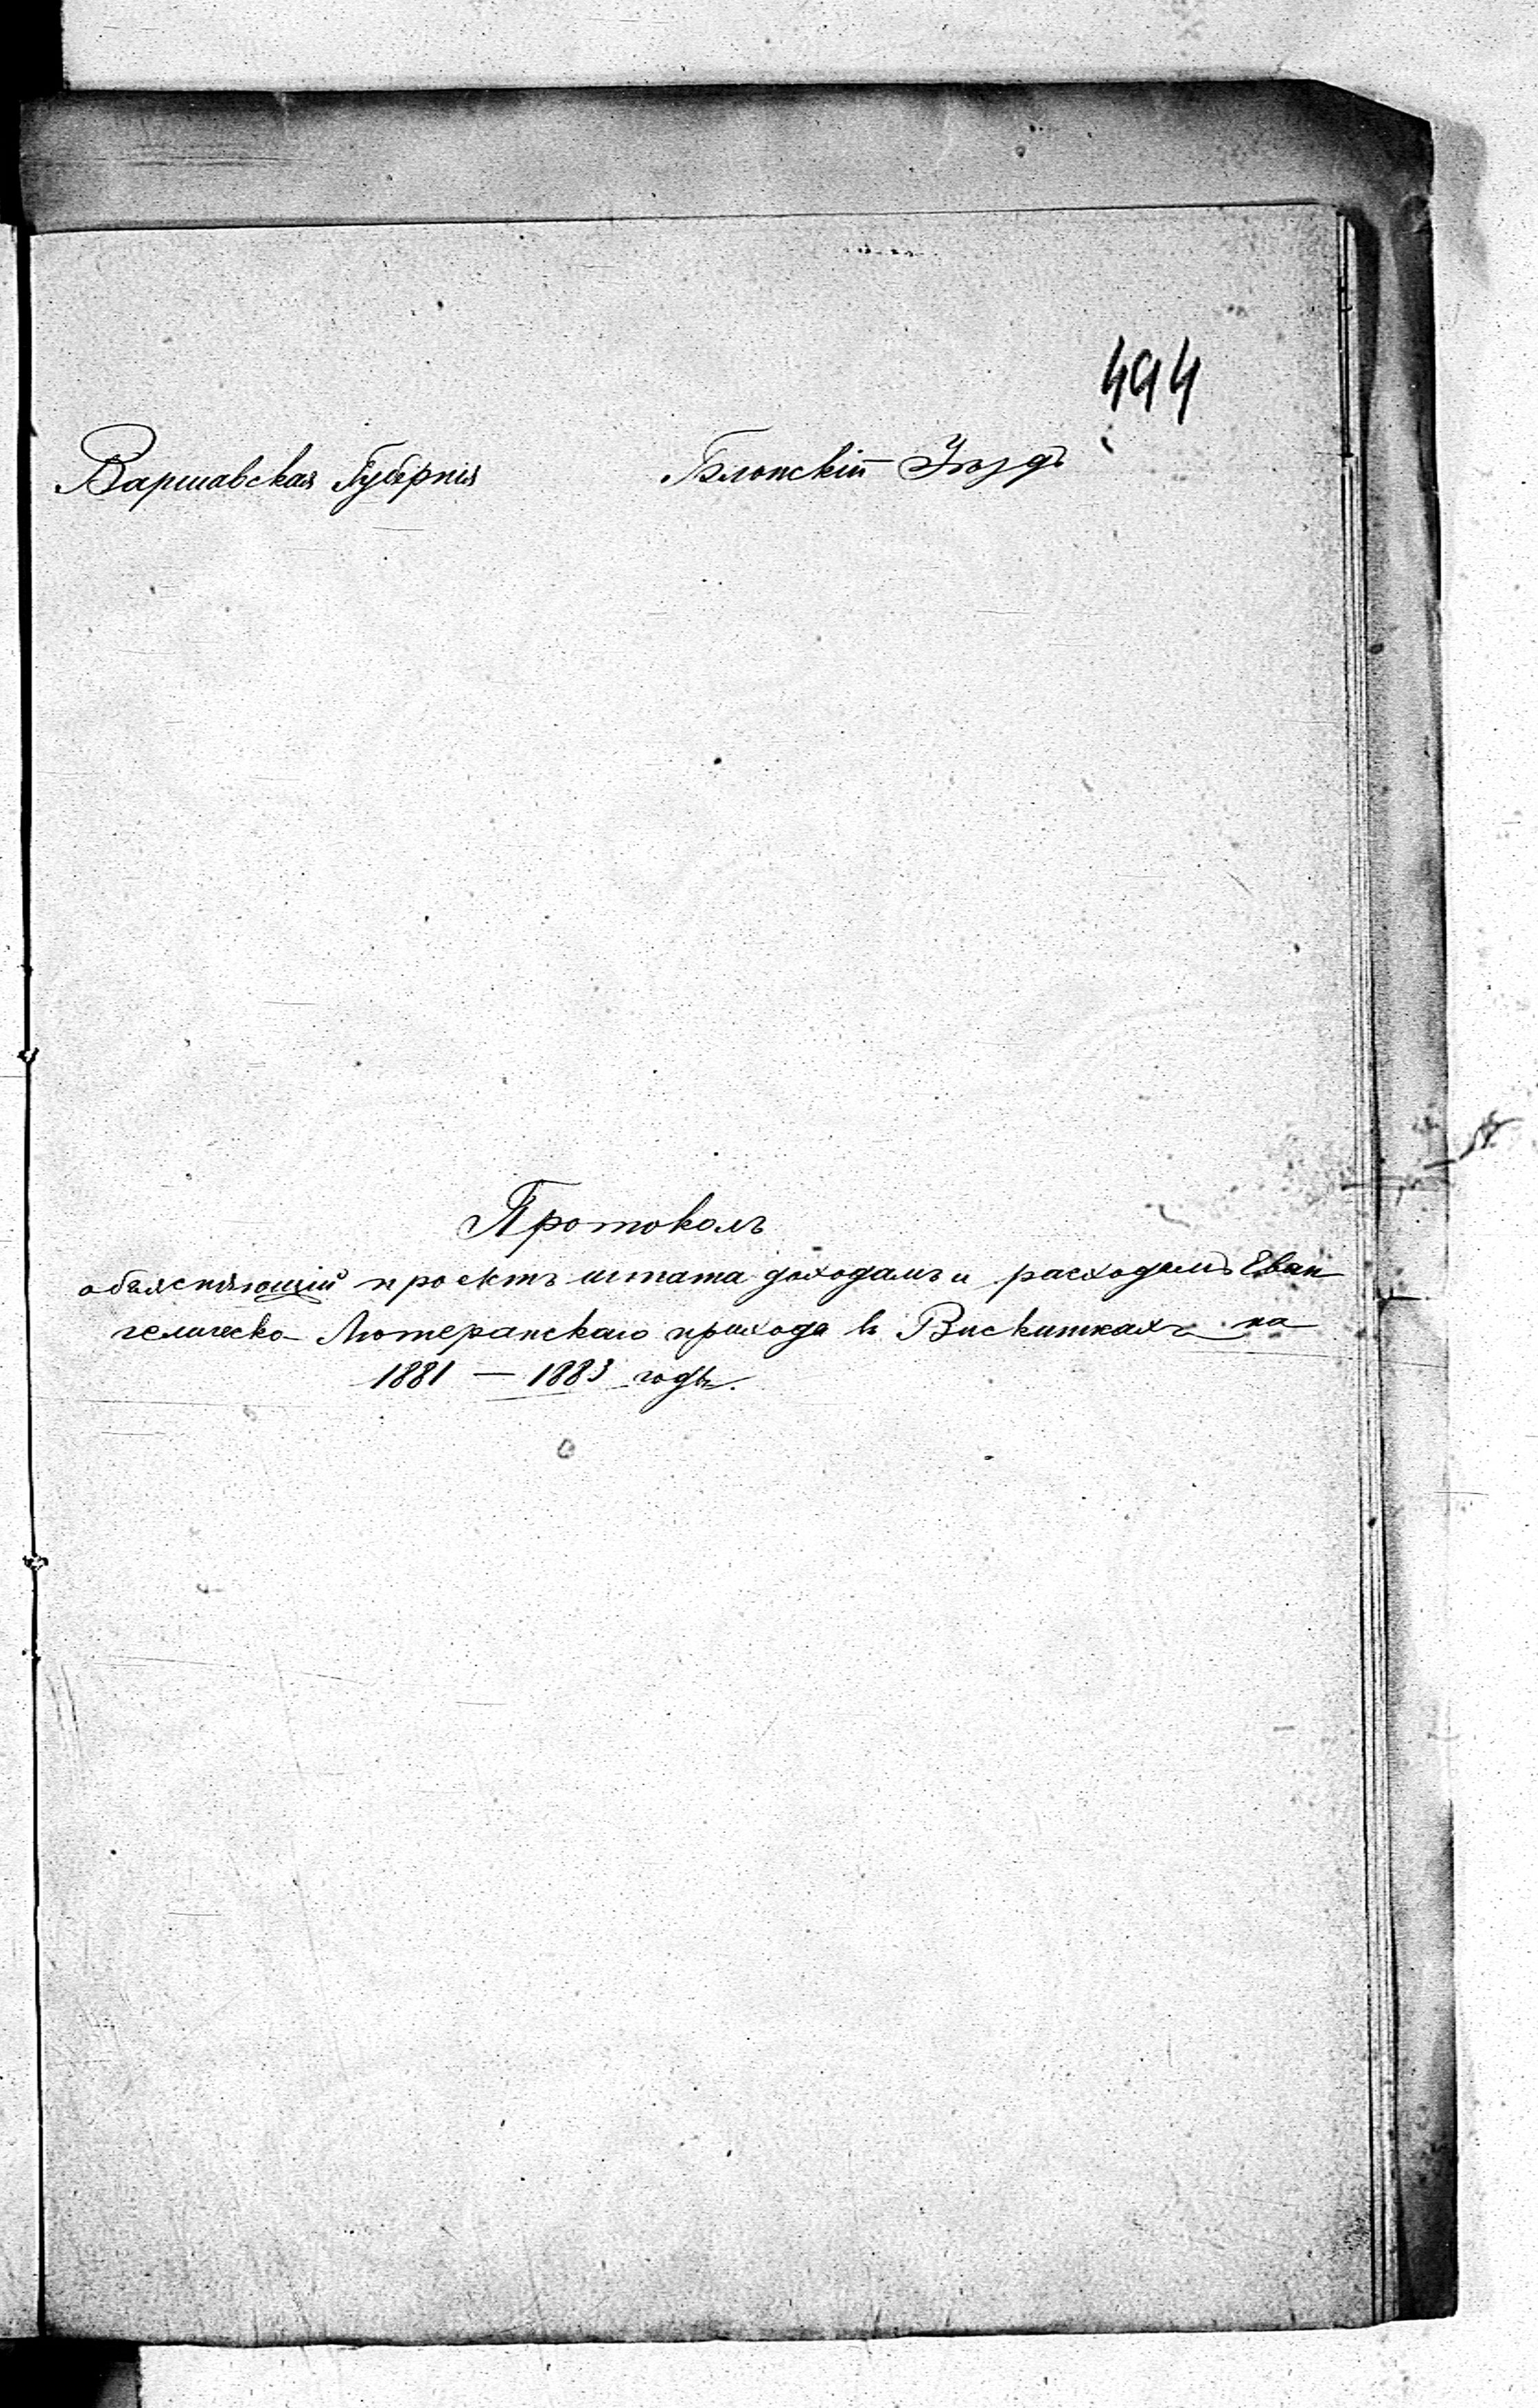 494
Варшавская Губернія Блонскій Уѣздъ
Протоколъ
объясняющій проектъ штата доходамъ и расходамъ Еван
гелическо- Лютеранскаго прихода въ Вискиткахъ на
1881 — 1883 годы.